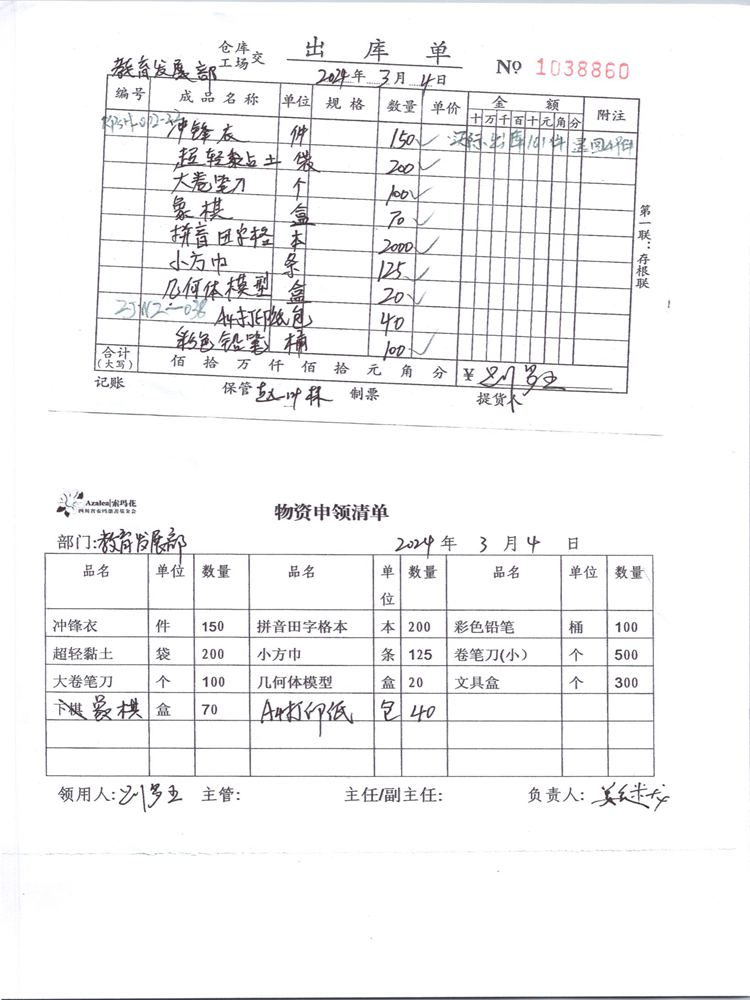 出库单
仓库
工场 交
教育发展部
2024年3月4日
Nº 1038860
编号 成品名称 单位 规格 数量 单价 金额 附注
十万千百十元角分
冲锋衣 件 150 ✓ 实际出库101件 退回49件
超轻黏土 袋 200 ✓
大卷笔刀 个 100 ✓
象棋 盒 70 ✓
拼音田字格 本 2000 ✓
小方巾 条 125 ✓
几何体模型 盒 20 ✓
A4打印纸 包 40
彩色铅笔 桶 100 ✓
合计
(大写) 佰拾万仟佰拾元角分 ¥
记账 保管 制票 提货人
第一联：存根联
Azalea|索玛花
四川省索玛慈善基金会
物资申领清单
部门:教育发展部 2024年3月4日
品名 单位 数量 品名 单位 数量 品名 单位 数量
冲锋衣 件 150 拼音田字格本 本 200 彩色铅笔 桶 100
超轻黏土 袋 200 小方巾 条 125 卷笔刀(小) 个 500
大卷笔刀 个 100 几何体模型 盒 20 文具盒 个 300
下棋 象棋 盒 70 A4打印纸 包 40
领用人: 主管: 主任/副主任: 负责人: